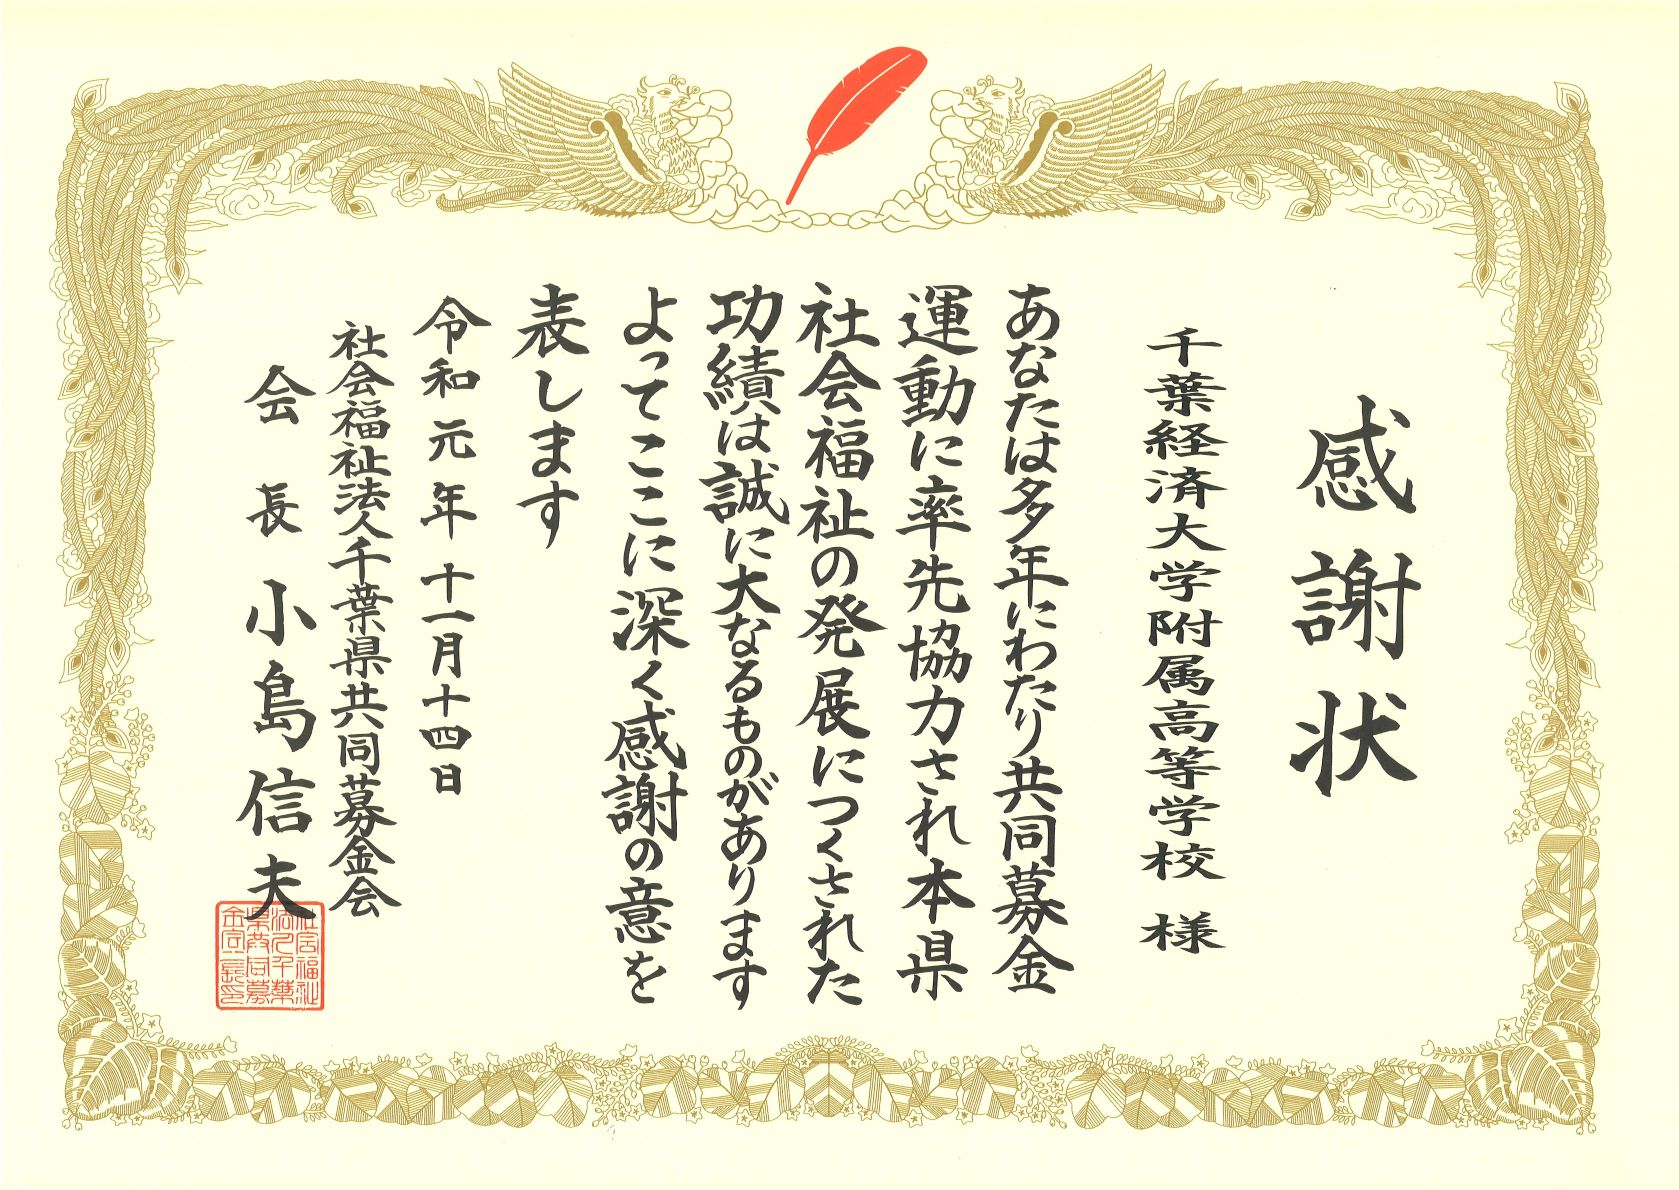 感謝状
千葉経済大学附属高等学校 様
あなたは多年にわたり共同募金
運動に率先協力され本県
社会福祉の発展につくされた
功績は誠に大なるものがあります
よってここに深く感謝の意を
表します
令和元年十一月十四日
社会福祉法人千葉県共同募金会
会長 小島信夫
社会福祉
法人千葉
県共同募
金会長印